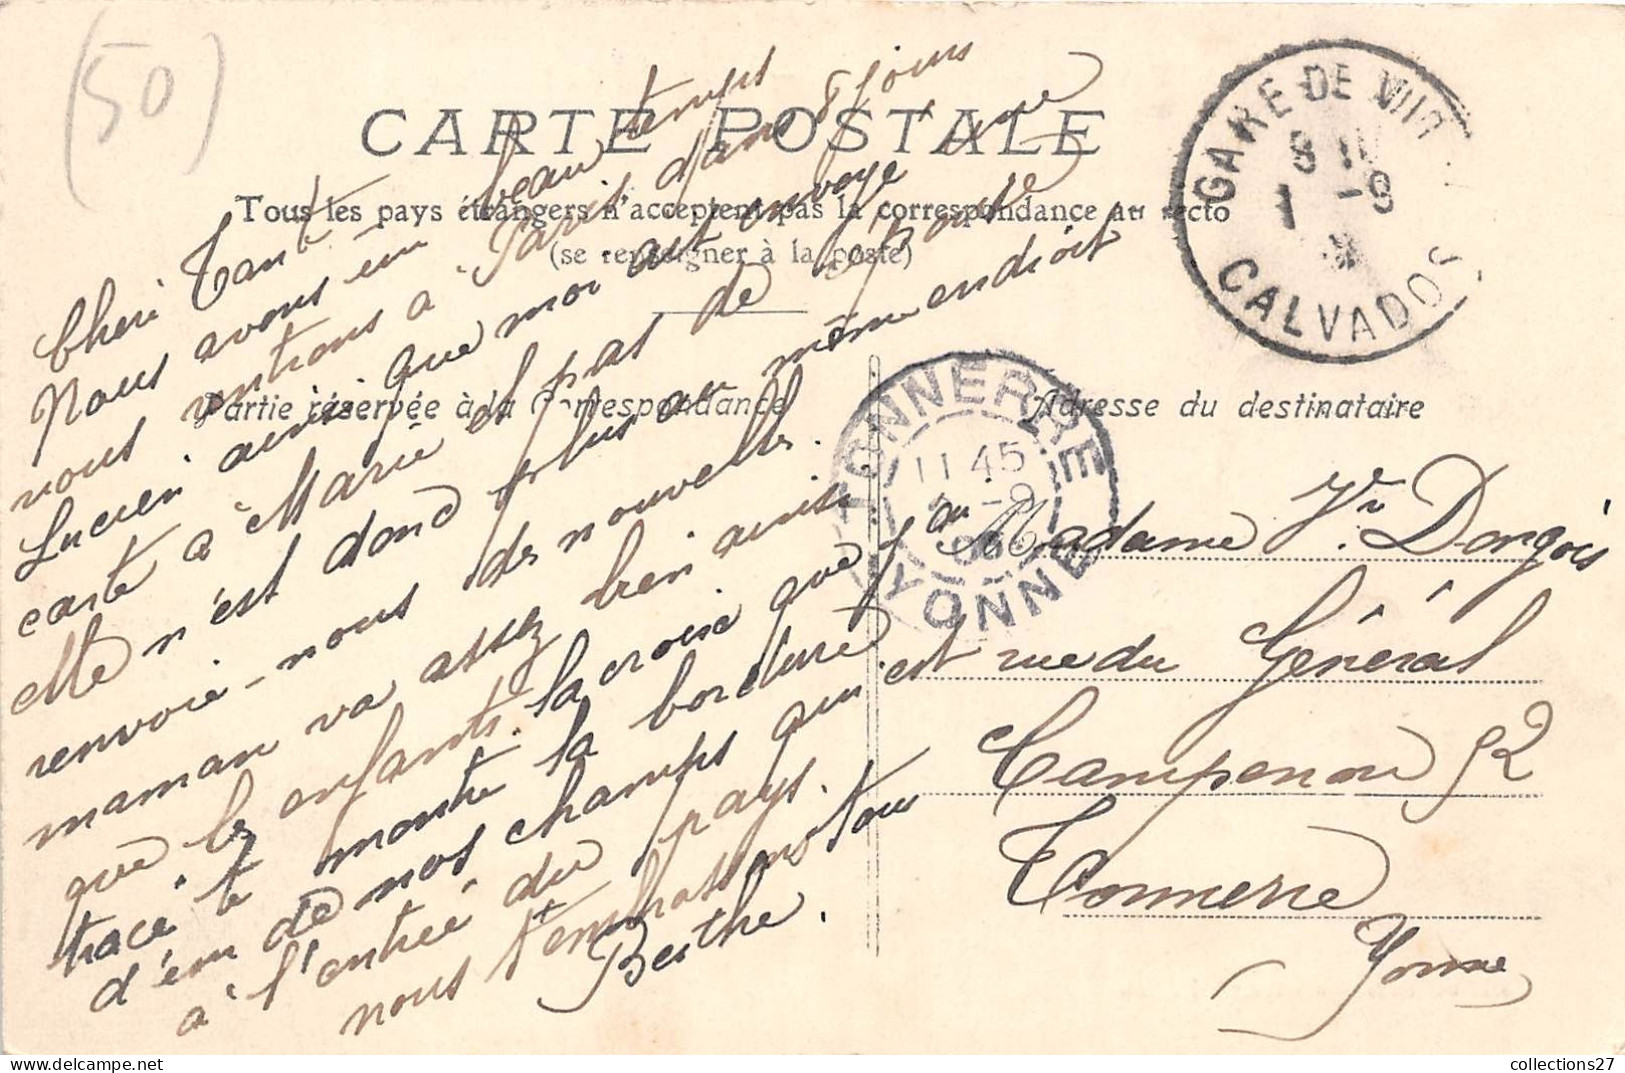 (50)
CARTE POSTALE
Tous les pays étrangers n'acceptent pas la correspondance au recto
(se renseigner à la poste)
Partie réservée à la Correspondance
Adresse du destinataire
GARE DE VIR
1 -9
CALVADOS
TONNERRE
11 45
-9
06
YONNE
Cheri Tante
Nous avons un beau temps
nous rentrons à Paris dans 8 jours
Lucien ainsi que moi ont envoyé une
carte à Marie et pas de réponse
elle n'est donc plus au même endroit
renvoie-nous de nouvelle.
maman va assez bien ainsi
que les enfants. la croix que j'au
tracé te montre la bordure
d'un de nos champs qui est
à l'entrée du pays.
nous t'embrassons tous
Berthe.
Madame Vve Dorgois
rue du Général
Campenon 52
Tonnerre
Yonne
collections27